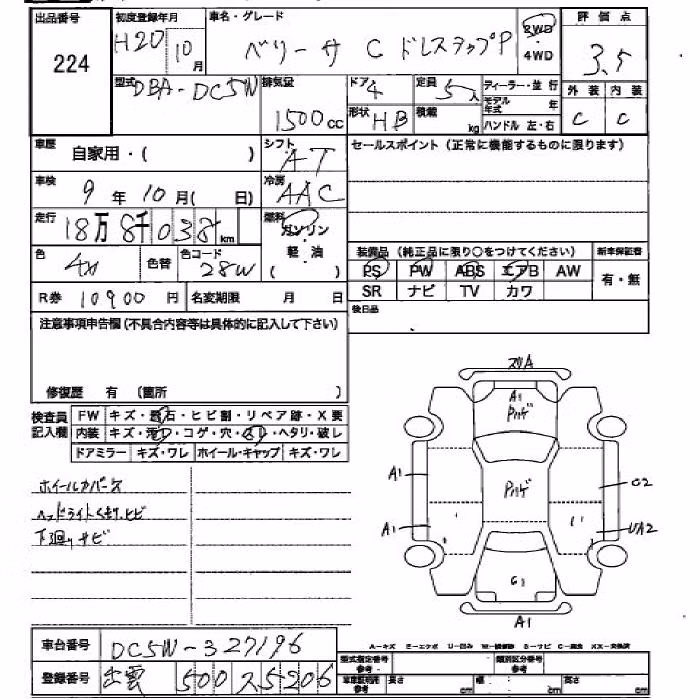 出品番号 初度登録年月 車名・グレード 評価点
224 H20 10月 ベリーサ C ドレスアップP 2WD ・ 4WD 3.5
型式 DBA-DC5W 排気量 1500cc ドア 4 定員 5人 ディーラー・並行 外装 内装
形状 HB 積載 kg モデル年式 年 C C
ハンドル 左・右
車歴 自家用・( ) シフト AT セールスポイント(正常に機能するものに限ります)
車検 9年10月( 日) 冷房 AAC
走行 18万8千038km 燃料 ガソリン・軽油 ( )
色 色替 色コード 28W 装備品(純正品に限り○をつけてください) 新車保証書
PS PW ABS エアB AW 有・無
SR ナビ TV カワ
R券 10900円 名変期限 月 日 後日品
注意事項申告欄(不具合内容等は具体的に記入して下さい)
修復歴 有 (箇所 )
検査員記入欄 FW キズ・飛石・ヒビ割・リペア跡・X要
内装 キズ・汚れ・コゲ・穴・ヘタリ・破レ
ドアミラー キズ・ワレ ホイール・キャップ キズ・ワレ
A1
Pハゲ
ホイールカバーキズ A1 Pハゲ G2
ヘッドライトくもり、ヒビ A1 UA2
下廻りサビ
G1
A1
車台番号 DC5W-327196
A-キズ E-エクボ U-凹み S-サビ C-腐食 XX-交換済
登録番号 出雲 500 ス5206 型式指定番号 類別区分番号
車庫証明用 参考 長さ cm 幅 cm 高さ cm